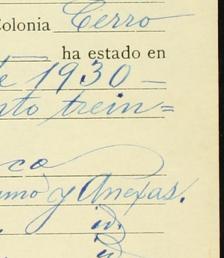 Colonia Cerro
ha estado en
de 1930 —
nto trein=
co
umo y Anexas.